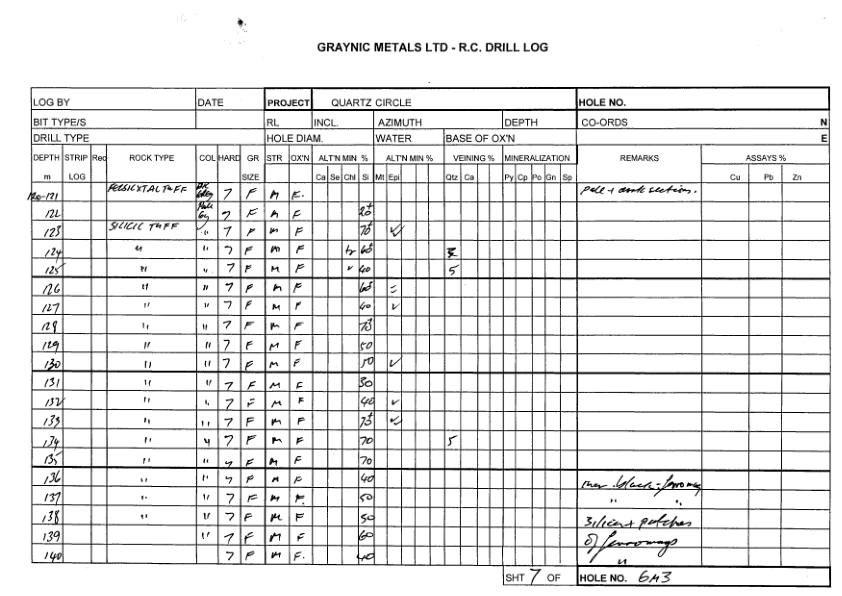 GRAYNIC METALS LTD - R.C. DRILL LOG
LOG BY DATE PROJECT QUARTZ CIRCLE HOLE NO.
BIT TYPE/S RL INCL. AZIMUTH DEPTH CO-ORDS N
DRILL TYPE HOLE DIAM. WATER BASE OF OX'N E
DEPTH STRIP Rec ROCK TYPE COL HARD GR STR OX'N ALT'N MIN % ALT'N MIN % VEINING % MINERALIZATION REMARKS ASSAYS %
m LOG SIZE Ca Se Chl Si Mt Epi Qtz Ca Py Cp Po Gn Sp Cu Pb Zn
120-121 FELSIC XTAL TUFF DK Grey 7 F M F. pale + dark sections.
122 Pale Gy 7 F M F 20+
123 SILICIC TUFF " 7 F M F 70+ ✓
124 " " 7 F M F tr 60+
125 " " 7 F M F 40 5
126 " " 7 F M F 60+ =
127 " " 7 F M F 40 ✓
128 " " 7 F M F
129 " " 7 F M F 50
130 " " 7 F M F 50 ✓
131 " " 7 F M F 30
132 " " 7 F M F 40 ✓
133 " " 7 F M F 75+ ✓
134 " " 7 F M F 70 5
135 " " 7 F M F 70
136 " " 7 F M F 40 black
137 " " 7 F M F. 50 " "
138 " " 7 F M F 50 silica + patches
139 " 7 F M F 60 of
140 7 F M F. 40 "
SHT 7 OF HOLE NO. GM3